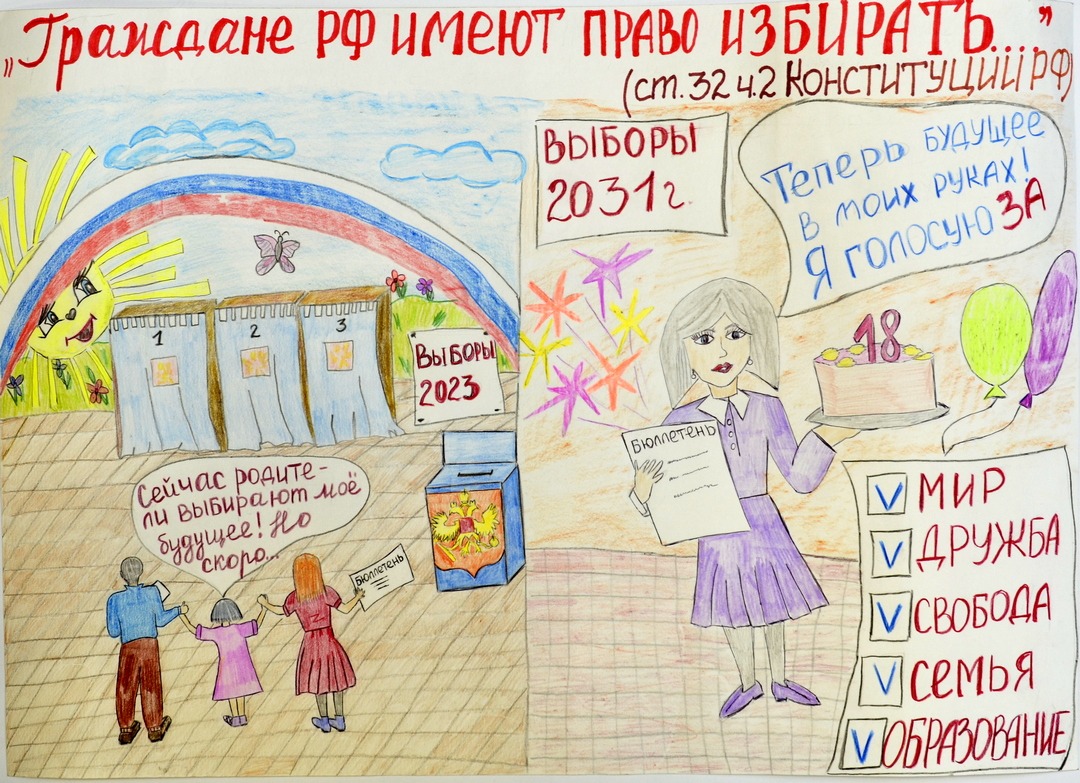 „Граждане РФ имеют право избирать...."
(ст. 32 ч. 2 Конституции РФ)
1
2
3
Выборы
2023
Сейчас родите-
ли выбирают моё
будущее! Но
скоро...
Бюллетень
Выборы
2031 г.
Теперь будущее
в моих руках!
Я голосую ЗА
18
Бюллетень
V МИР
V ДРУЖБА
V СВОБОДА
V СЕМЬЯ
V ОБРАЗОВАНИЕ